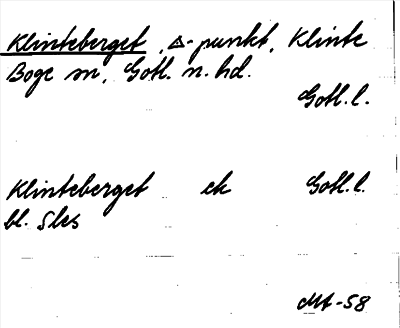 Klinteberget, Δ-punkt, Klinte
Boge sn, Gotl. n. hd.
Gotl. l.
Klinteberget ek Gotl. l.
bl. 5
-58